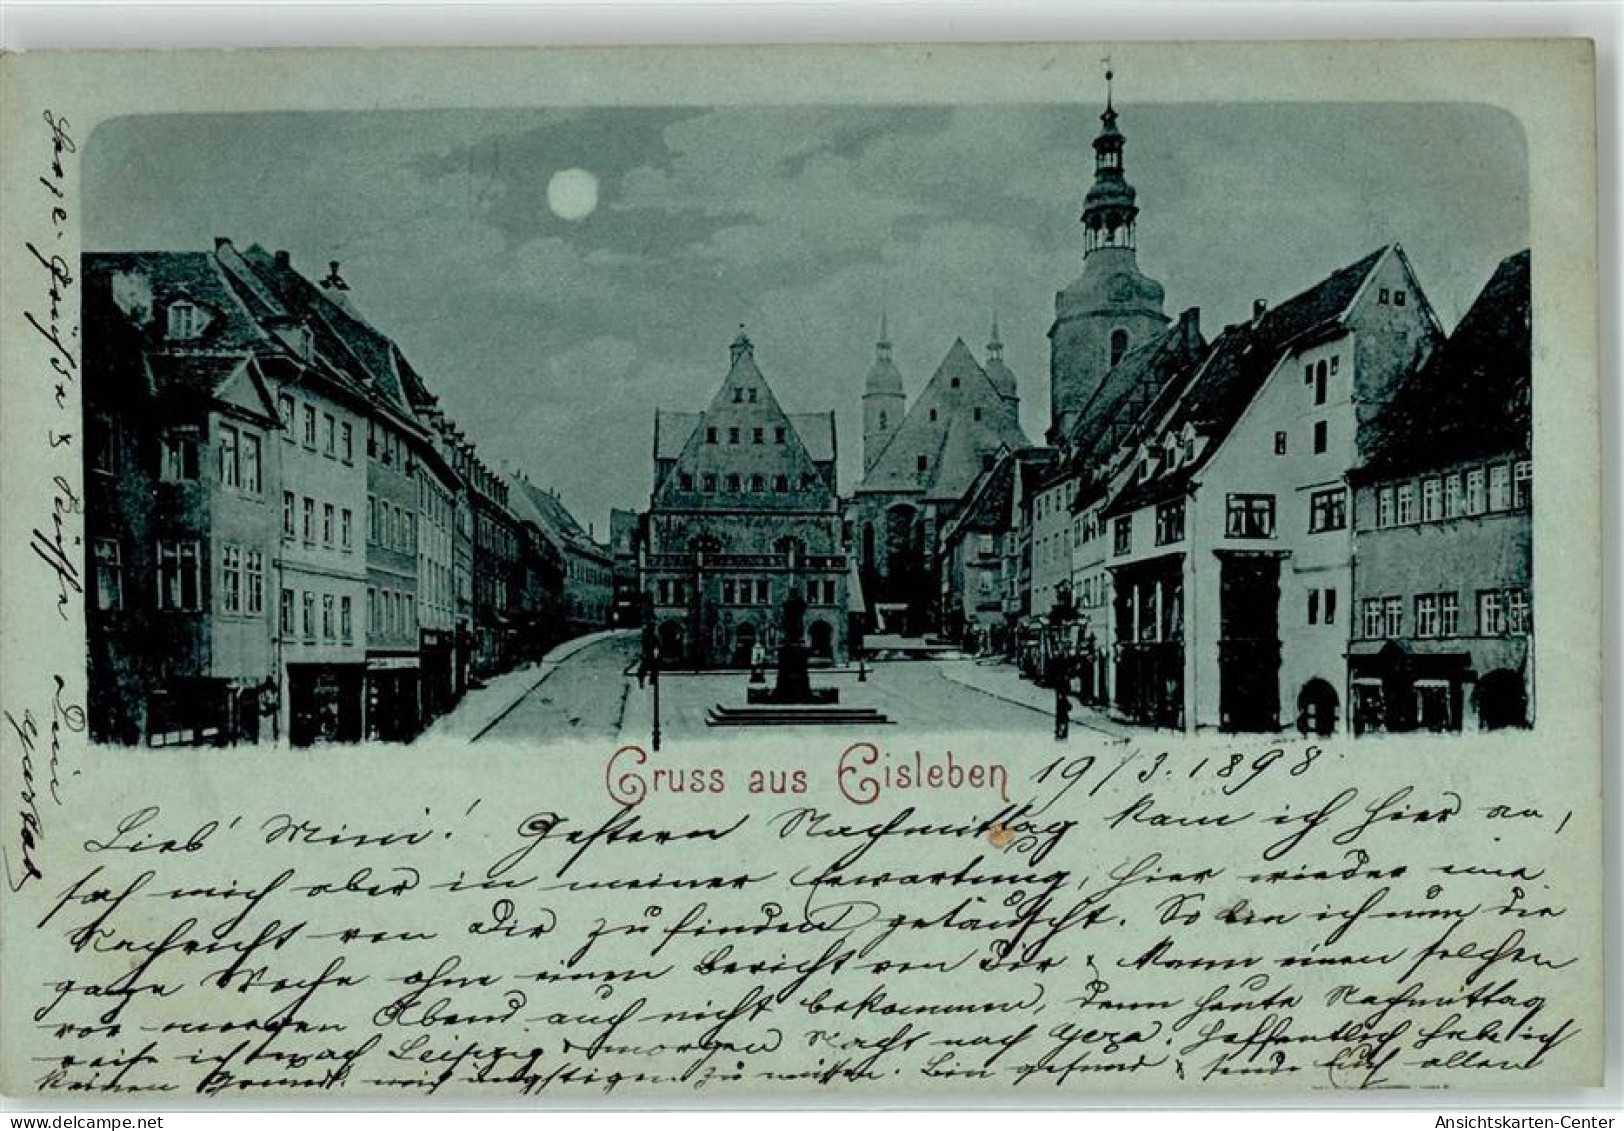 Gruss aus Eisleben 19/3. 1898.
Lieb' Mimi! Gestern Nachmittag kam ich hier an,
sah mich aber in meiner Erwartung, hier wieder eine
Nachricht von Dir zu finden getäuscht. So bin ich nun die
ganze Woche ohne einen Bericht von Dir & kann einen solchen
vor morgen Abend auch nicht bekommen, denn heute Nachmittag
reise ich nach Leipzig & morgen Nacht nach Gera. Hoffentlich habe ich
keinen Grund mich ängstigen zu müssen. Bin gesund & sende Euch allen
herzl. Grüße & Küsse Dein
Gustav
Ansichtskarten-Center